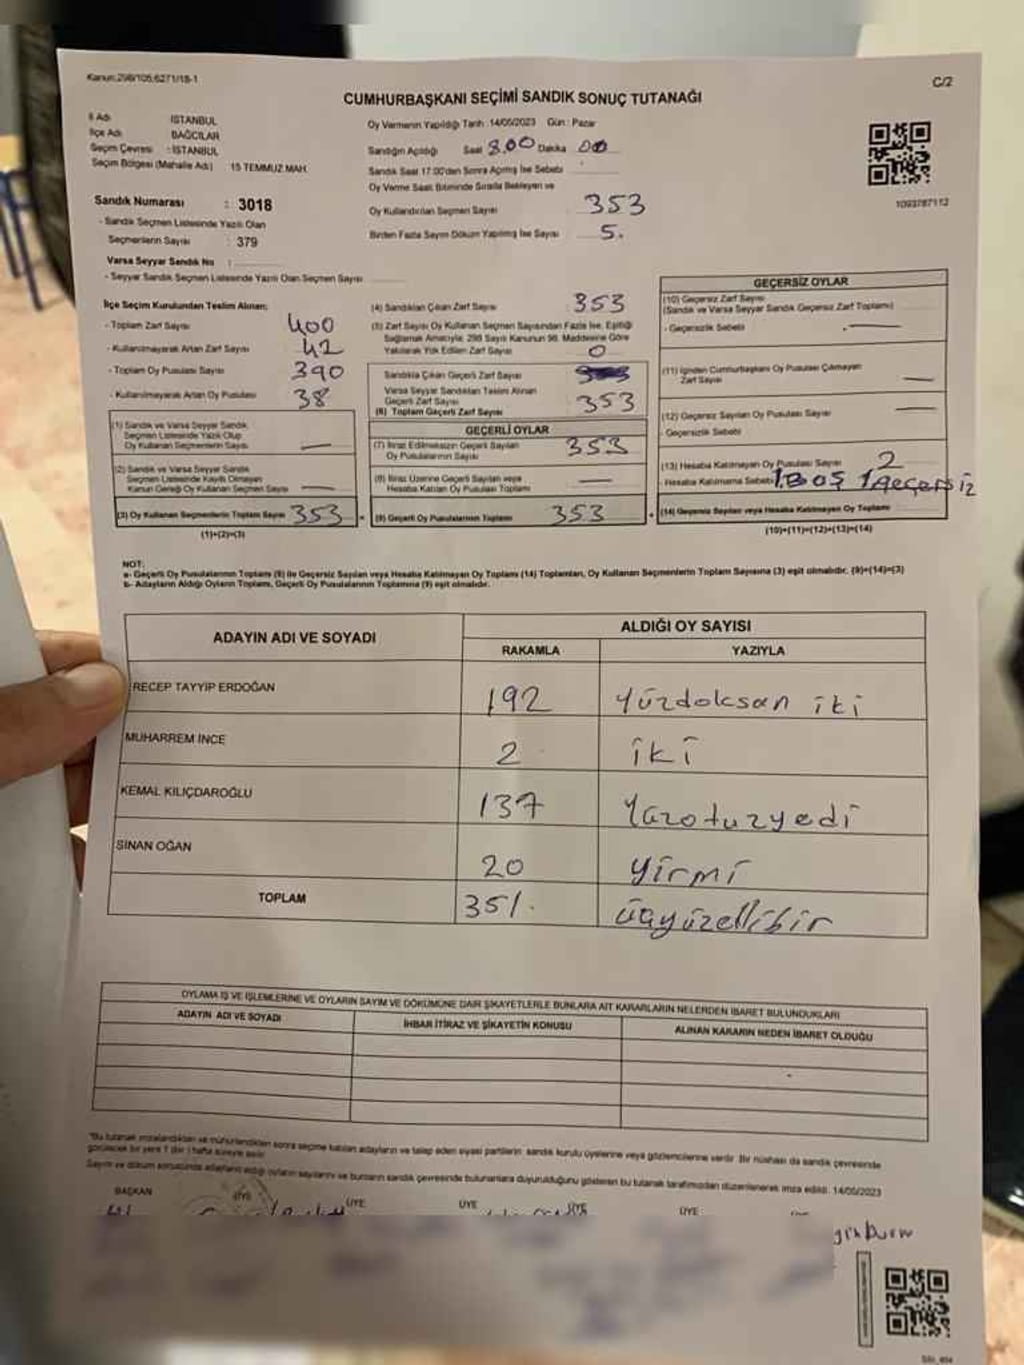 Kanun:298/105;6271/18-1
C/2
CUMHURBAŞKANI SEÇİMİ SANDIK SONUÇ TUTANAĞI
İl Adı İSTANBUL
İlçe Adı BAĞCILAR
Seçim Çevresi : İSTANBUL
Seçim Bölgesi (Mahalle Adı) 15 TEMMUZ MAH.
Sandık Numarası : 3018
- Sandık Seçmen Listesinde Yazılı Olan
Seçmenlerin Sayısı : 379
Varsa Seyyar Sandık No :
- Seyyar Sandık Seçmen Listesinde Yazılı Olan Seçmen Sayısı
Oy Vermenin Yapıldığı Tarih :14/05/2023 Gün : Pazar
Sandığın Açıldığı Saat 8.00 Dakika 00
Sandık Saat 17:00'den Sonra Açılmış İse Sebebi
Oy Verme Saati Bitiminde Sırada Bekleyen ve
Oy Kullandırılan Seçmen Sayısı 353
Birden Fazla Sayım Döküm Yapılmış İse Sayısı 5.
1093787112
İlçe Seçim Kurulundan Teslim Alınan:
- Toplam Zarf Sayısı 400
- Kullanılmayarak Artan Zarf Sayısı 42
- Toplam Oy Pusulası Sayısı 390
- Kullanılmayarak Artan Oy Pusulası 38
(1) Sandık ve Varsa Seyyar Sandık
Seçmen Listesinde Yazılı Olup
Oy Kullanan Seçmenlerin Sayısı —
(2) Sandık ve Varsa Seyyar Sandık
Seçmen Listesinde Kayıtlı Olmayan
Kanun Gereği Oy Kullanan Seçmen Sayısı —
(3) Oy Kullanan Seçmenlerin Toplam Sayısı 353
(1)+(2)=(3)
(4) Sandıktan Çıkan Zarf Sayısı 353
(5) Zarf Sayısı Oy Kullanan Seçmen Sayısından Fazla İse, Eşitliği
Sağlamak Amacıyla; 298 Sayılı Kanunun 98. Maddesine Göre
Yakılarak Yok Edilen Zarf Sayısı 0
Sandıkta Çıkan Geçerli Zarf Sayısı
Varsa Seyyar Sandıktan Teslim Alınan
Geçerli Zarf Sayısı
(6) Toplam Geçerli Zarf Sayısı 353
GEÇERLİ OYLAR
(7) İtiraz Edilmeksizin Geçerli Sayılan
Oy Pusulalarının Sayısı 353
(8) İtiraz Üzerine Geçerli Sayılan veya
Hesaba Katılan Oy Pusulası Toplamı —
(9) Geçerli Oy Pusulalarının Toplamı 353
GEÇERSİZ OYLAR
(10) Geçersiz Zarf Sayısı
(Sandık ve Varsa Seyyar Sandık Geçersiz Zarf Toplamı)
- Geçersizlik Sebebi —
(11) İçinden Cumhurbaşkanı Oy Pusulası Çıkmayan
Zarf Sayısı —
(12) Geçersiz Sayılan Oy Pusulası Sayısı —
- Geçersizlik Sebebi
(13) Hesaba Katılmayan Oy Pusulası Sayısı 2
- Hesaba Katılmama Sebebi 1 BOŞ 1 Geçersiz
(14) Geçersiz Sayılan veya Hesaba Katılmayan Oy Toplamı
(10)+(11)+(12)+(13)=(14)
NOT:
a- Geçerli Oy Pusulalarının Toplamı (9) ile Geçersiz Sayılan veya Hesaba Katılmayan Oy Toplamı (14) Toplamları, Oy Kullanan Seçmenlerin Toplam Sayısına (3) eşit olmalıdır. (9)+(14)=(3)
b- Adayların Aldığı Oyların Toplamı, Geçerli Oy Pusulalarının Toplamına (9) eşit olmalıdır.
ADAYIN ADI VE SOYADI
ALDIĞI OY SAYISI
RAKAMLA YAZIYLA
RECEP TAYYİP ERDOĞAN 192 Yüzdoksan iki
MUHARREM İNCE 2 iki
KEMAL KILIÇDAROĞLU 137 Yüzotuzyedi
SİNAN OĞAN 20 yirmi
TOPLAM 351. üçyüzellibir
OYLAMA İŞ VE İŞLEMLERİNE VE OYLARIN SAYIM VE DÖKÜMÜNE DAİR ŞİKAYETLERLE BUNLARA AİT KARARLARIN NELERDEN İBARET BULUNDUKLARI
ADAYIN ADI VE SOYADI İHBAR İTİRAZ VE ŞİKAYETİN KONUSU ALINAN KARARIN NEDEN İBARET OLDUĞU
"Bu tutanak imzalandıktan ve mühürlendikten sonra seçime katılan adayların ve talep eden siyasi partilerin sandık kurulu üyelerine veya gözlemcilerine verilir. Bir nüshası da sandık çevresinde
görülecek bir yere 1 (bir ) hafta süreyle asılır.
Sayım ve döküm sonucunda adayların aldığı oyların sayılarını ve bunların sandık çevresinde bulunanlara duyurulduğunu gösteren bu tutanak tarafımızdan düzenlenerek imza edildi. 14/05/2023
BAŞKAN ÜYE ÜYE ÜYE ÜYE ÜYE